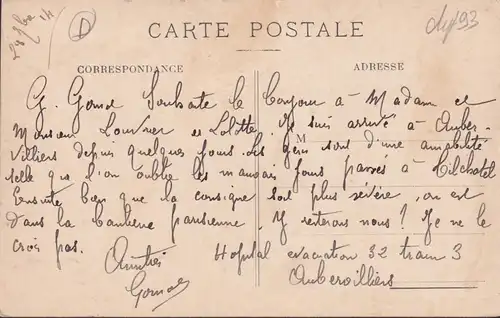 CARTE POSTALE
CORRESPONDANCE
ADRESSE
G. Souhaite le bonjour à Madam et
Monsieur Louvrier et Lolotte. Je suis arrivé à Auber-
M
villiers depuis quelques jours. Les gens sont d'une amabilité
telle que l'on oublie les mauvais jours passés à
Ensuite bien que la consigne soit plus sévère, on est
dans la banlieue parisienne. Y resterons nous? Je ne le
crois pas.
Amitiés
Hopital evacuation 32 train 3
Aubervilliers